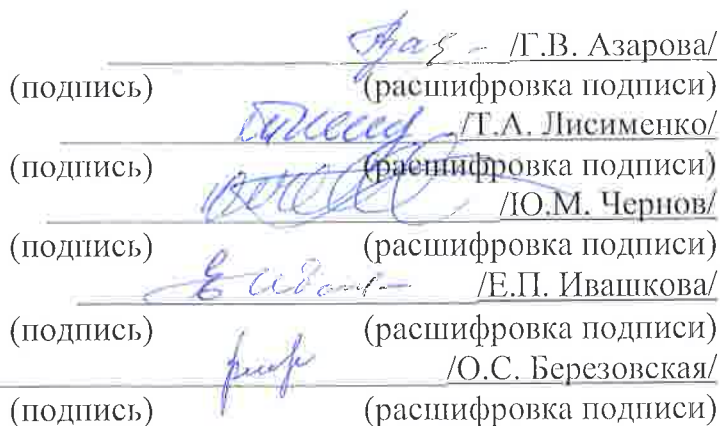 /Г.В. Азарова/
(подпись) (расшифровка подписи)
/Т.А. Лисименко/
(подпись) (расшифровка подписи)
/Ю.М. Чернов/
(подпись) (расшифровка подписи)
/Е.П. Ивашкова/
(подпись) (расшифровка подписи)
/О.С. Березовская/
(подпись) (расшифровка подписи)